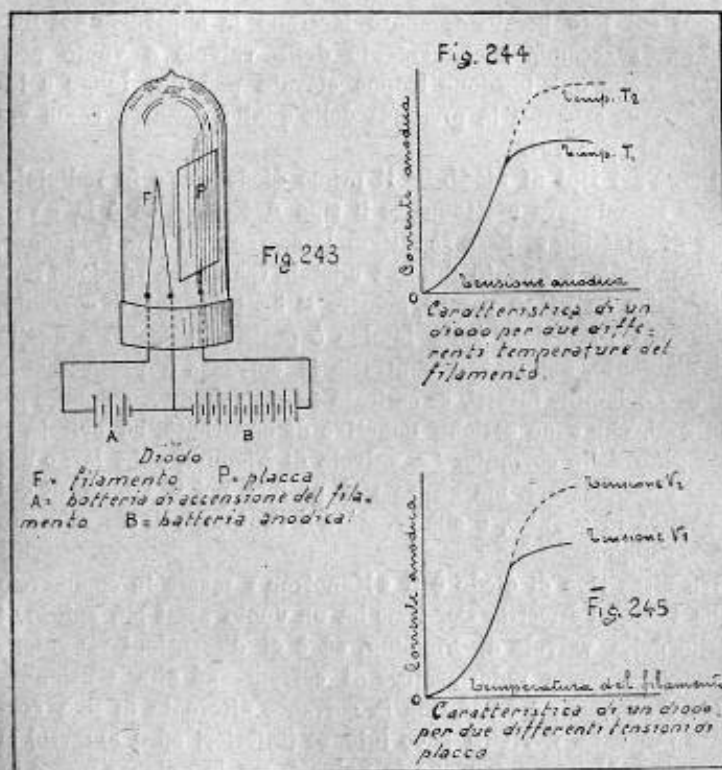 Fig. 243
F
P
A
B
Diodo
F= filamento P= placca
A= batteria di accensione del fila=
mento B= batteria anodica.
Fig. 244
Corrente anodica
Temp. T2
Temp. T1
O
Tensione anodica
Caratteristica di un
diodo per due diffe=
renti temperature del
filamento.
Corrente anodica
Tensione V2
Tensione V1
Fig. 245
O
Temperatura del filamento
Caratteristica di un diodo
per due differenti tensioni di
placca